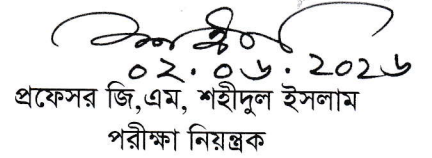 ০২.০৬.২০২৬
প্রফেসর জি,এম, শহীদুল ইসলাম
পরীক্ষা নিয়ন্ত্রক